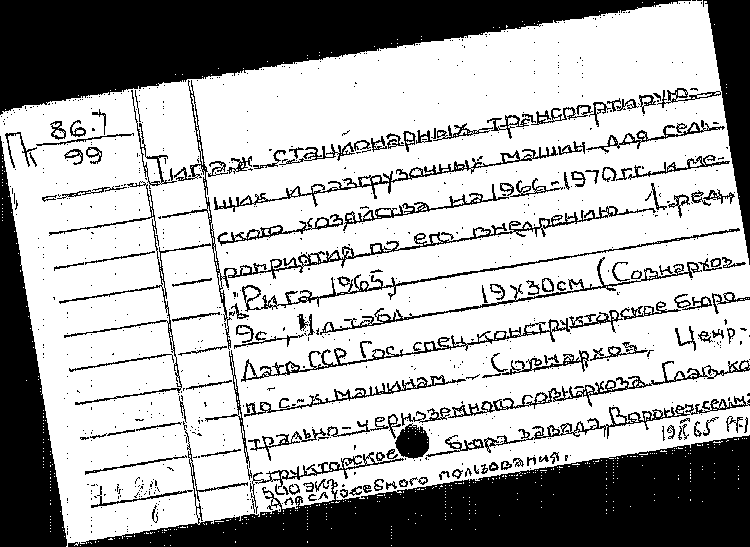 Пк 86.7
99
Типаж стационарных транспортирую-
щих и разгрузочных машин для сель-
ского хозяйства на 1966-1970 гг. и ме-
роприятия по его внедрению. 1 ред.,
Рига, 1965,
9с., 4 л. табл. 19х30см. (Совнархоз
Латв. ССР Гос. спец. конструкторское бюро
по с.-х. машинам. Совнархоз Центр.-
трально-черноземного совнархоза. Глав. ко
структорское бюро завода „Воронежсельма
500 экз. 1965
Для служебного пользования.